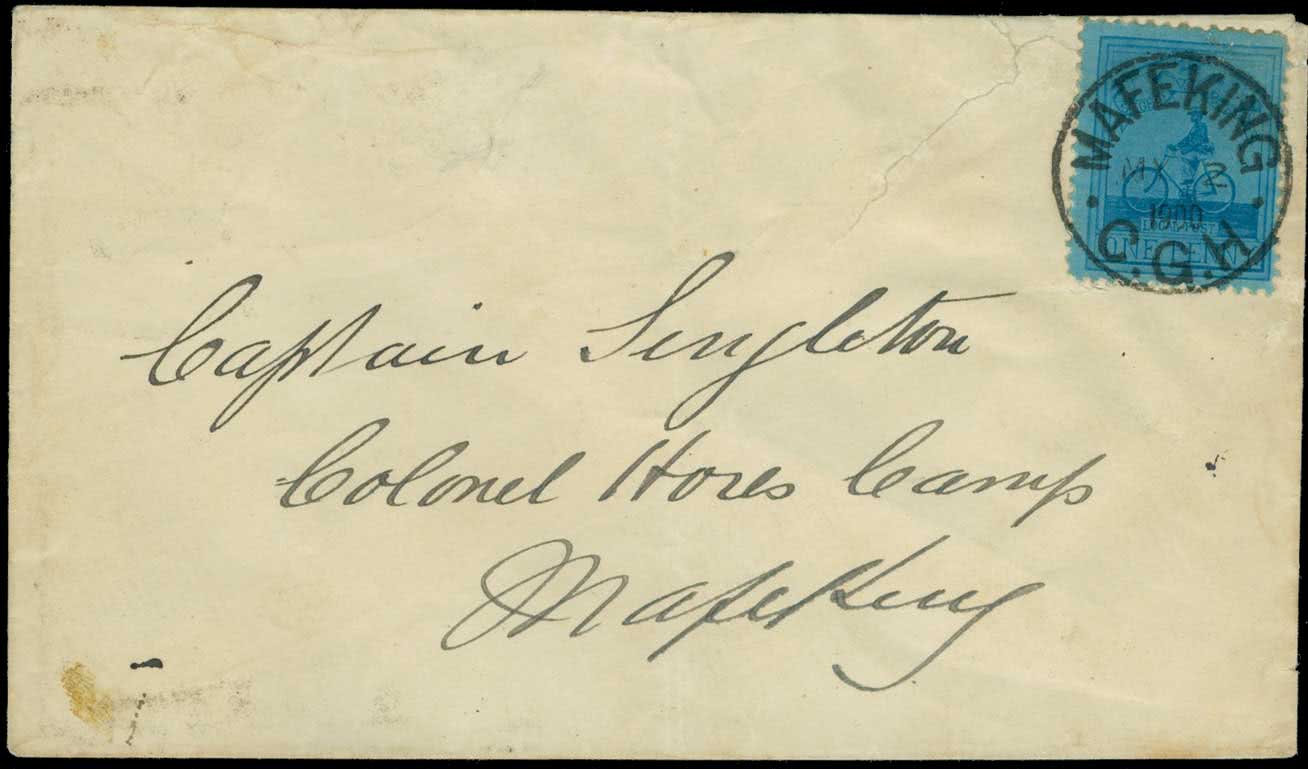 MAFEKING
MY 2
1900
C.G.H
LOCAL POST
ONE PENNY
Captain Singleton
Colonel Hores Camp
Mafeking